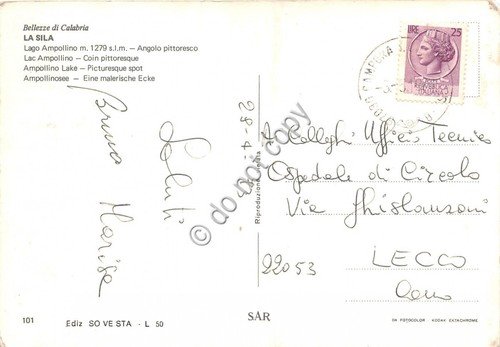 Bellezze di Calabria
LA SILA
Lago Ampollino m. 1279 s.l.m. — Angolo pittoresco
Lac Ampollino — Coin pittoresque
Ampollino Lake — Picturesque spot
Ampollinosee — Eine malerische Ecke
Saluti
Bruno Marisa
28-4-
Riproduzione
LIRE 25
REPVBBLICA
ITALIANA
Ai Colleghi Ufficio Tecnico
Ospedale di Circolo
Via Ghislanzoni
22053
LECCO
Como
101
Ediz SO VE STA - L 50
SAR
DA FOTOCOLOR - KODAK EKTACHROME
© do not copy